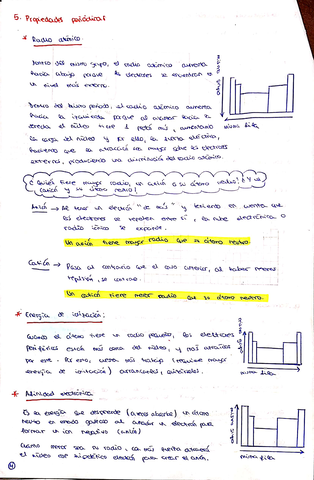 5. Propiedades periódicas
* Radio atómico
Dentro del mismo grupo, el radio atómico aumenta
hacia abajo porque los electrones se encuentran en
un nivel más externo.
Dentro del mismo periodo, el radio atómico aumenta
hacia la izquierda porque al avanzar hacia la
derecha el núcleo tiene 1 protón más, aumentando
la carga del núcleo y por ello, la fuerza eléctrica,
haciendo que la atracción sea mayor sobre los electrones
externos, produciendo una disminución del radio atómico.
mismo grupo
misma fila
¿Quién tiene mayor radio, un anión o su átomo neutro? ¿Y un
catión y su átomo neutro?
Anión → Al tener un electrón "de más" y teniendo en cuenta que
los electrones se repelen entre sí, la nube electrónica o
radio iónico se expande.
Un anión tiene mayor radio que su átomo neutro.
Catión → Pasa al contrario que el caso anterior, al haber menos
repulsión, se contrae.
Un catión tiene menor radio que su átomo neutro.
* Energía de ionización:
Cuando el átomo tiene un radio pequeño, los electrones
periféricos están más cerca del núcleo, y más atraídos
por este. Por eso, cuesta más trabajo (requiere mayor
energía de ionización) arrancarlos,
mismo grupo
misma fila
* Afinidad electrónica
Es la energía que desprende (a veces absorbe) un átomo
neutro en estado gaseoso al añadir un electrón para
formar un ion negativo (anión)
Cuanto menor sea su radio, con más fuerza atraerá
el núcleo ese hipotético electrón para crear el anión.
mismo grupo
misma fila